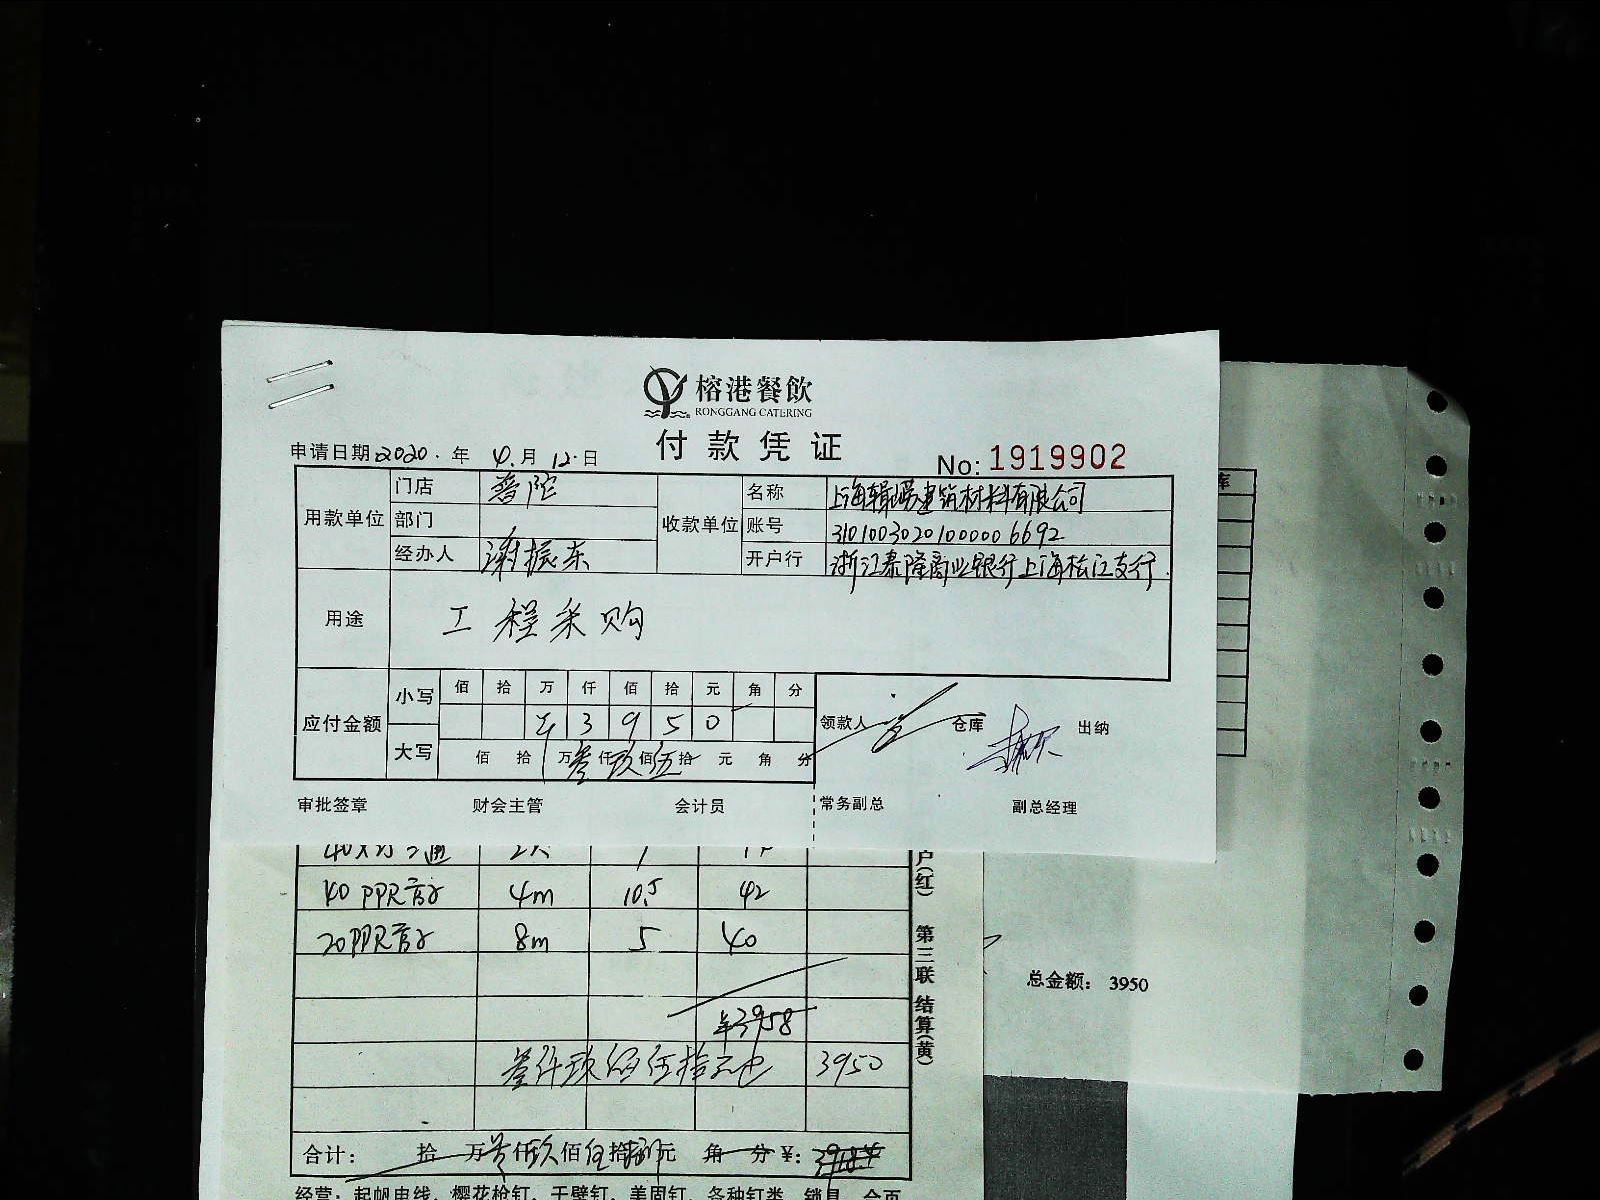 榕港餐飲
RONGGANG CATERING
付款凭证
申请日期 2020. 年 4. 月 12. 日
No: 1919902
用款单位 门店 普陀
部门
经办人 谢振东
收款单位 名称 上海 建筑材料有限公司
账号 3101003020100000 6692
开户行 浙江泰隆商业银行上海松江支行.
用途 工程采购
应付金额 小写 佰 拾 万 仟 佰 拾 元 角 分
¥ 3 9 5 0
大写 佰 拾 万 叁 仟 玖 佰 伍 拾 元 角 分
领款人 仓库 出纳
审批签章 财会主管 会计员 常务副总 副总经理
库
40 PPR管 4m 10.5 42
20PPR管 8m 5 40
¥3958
叁仟玖佰伍拾元也 3950
合计: 拾 万 叁 仟 玖 佰 伍 拾 元 角 分 ¥:
经营: 起帆电线、樱花枪钉、干壁钉、美固钉、各种钉类、锁具、合页
户(红) 第三联 结算(黄)
总金额: 3950